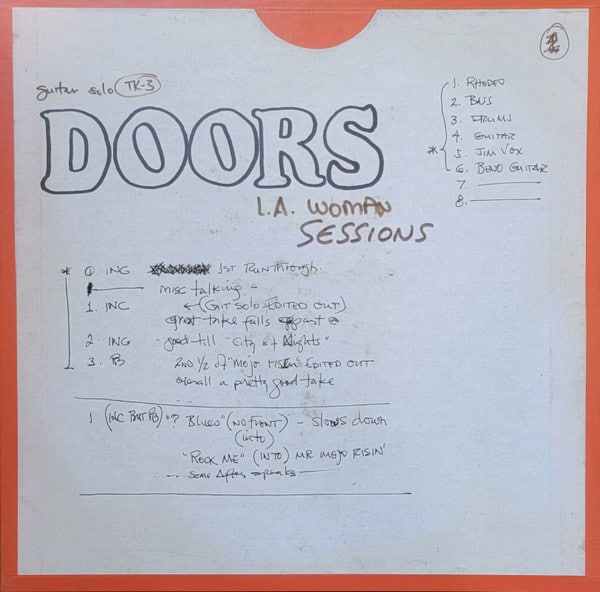 guitar solo TK-3
DOORS
L.A. WOMAN
SESSIONS
1. RHODES
2. BASS
3. DRUMS
4. GUITAR
* 5. JIM VOX
6. BEND GUITAR
7.
8.
* 0. ING 1ST RUN through
misc talking -
1. INC ←(GIT SOLO EDITED OUT)
great take falls apart @
2. ING good till "City of Nights"
3. PB 2ND 1/2 of "Mojo RISIN" EDITED OUT
overall a pretty good take
1 (INC BUT PB) "? Blues" (NO FRONT) - Slows down
(into)
"ROCK ME" (INTO) MR MOJO RISIN'
some After speaks